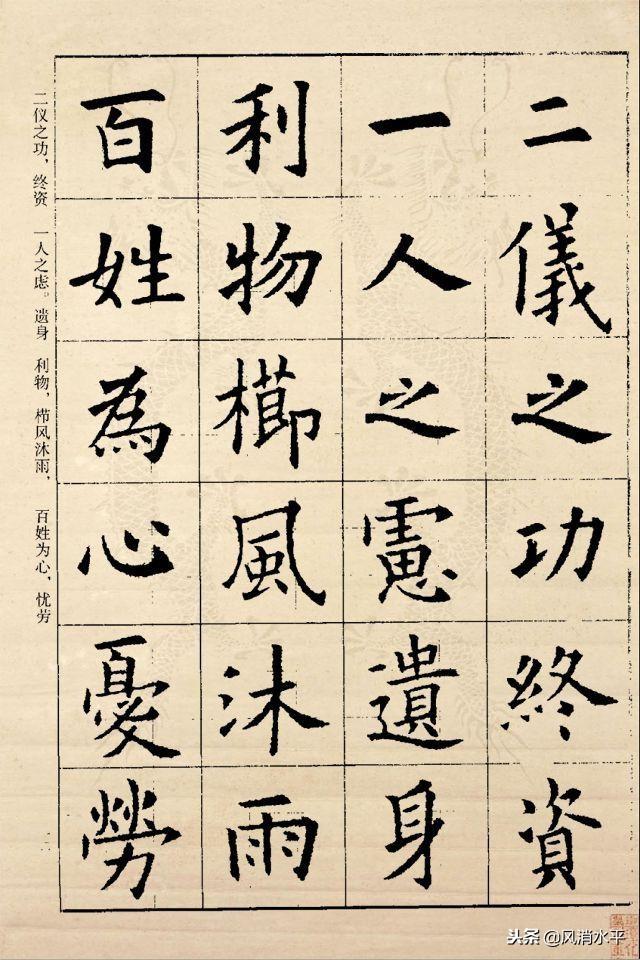 二儀之功終資
一人之慮遺身
利物櫛風沐雨
百姓為心憂勞
二仪之功，终资 一人之虑。遗身 利物，栉风沐雨， 百姓为心，忧劳
头条 @风消水平